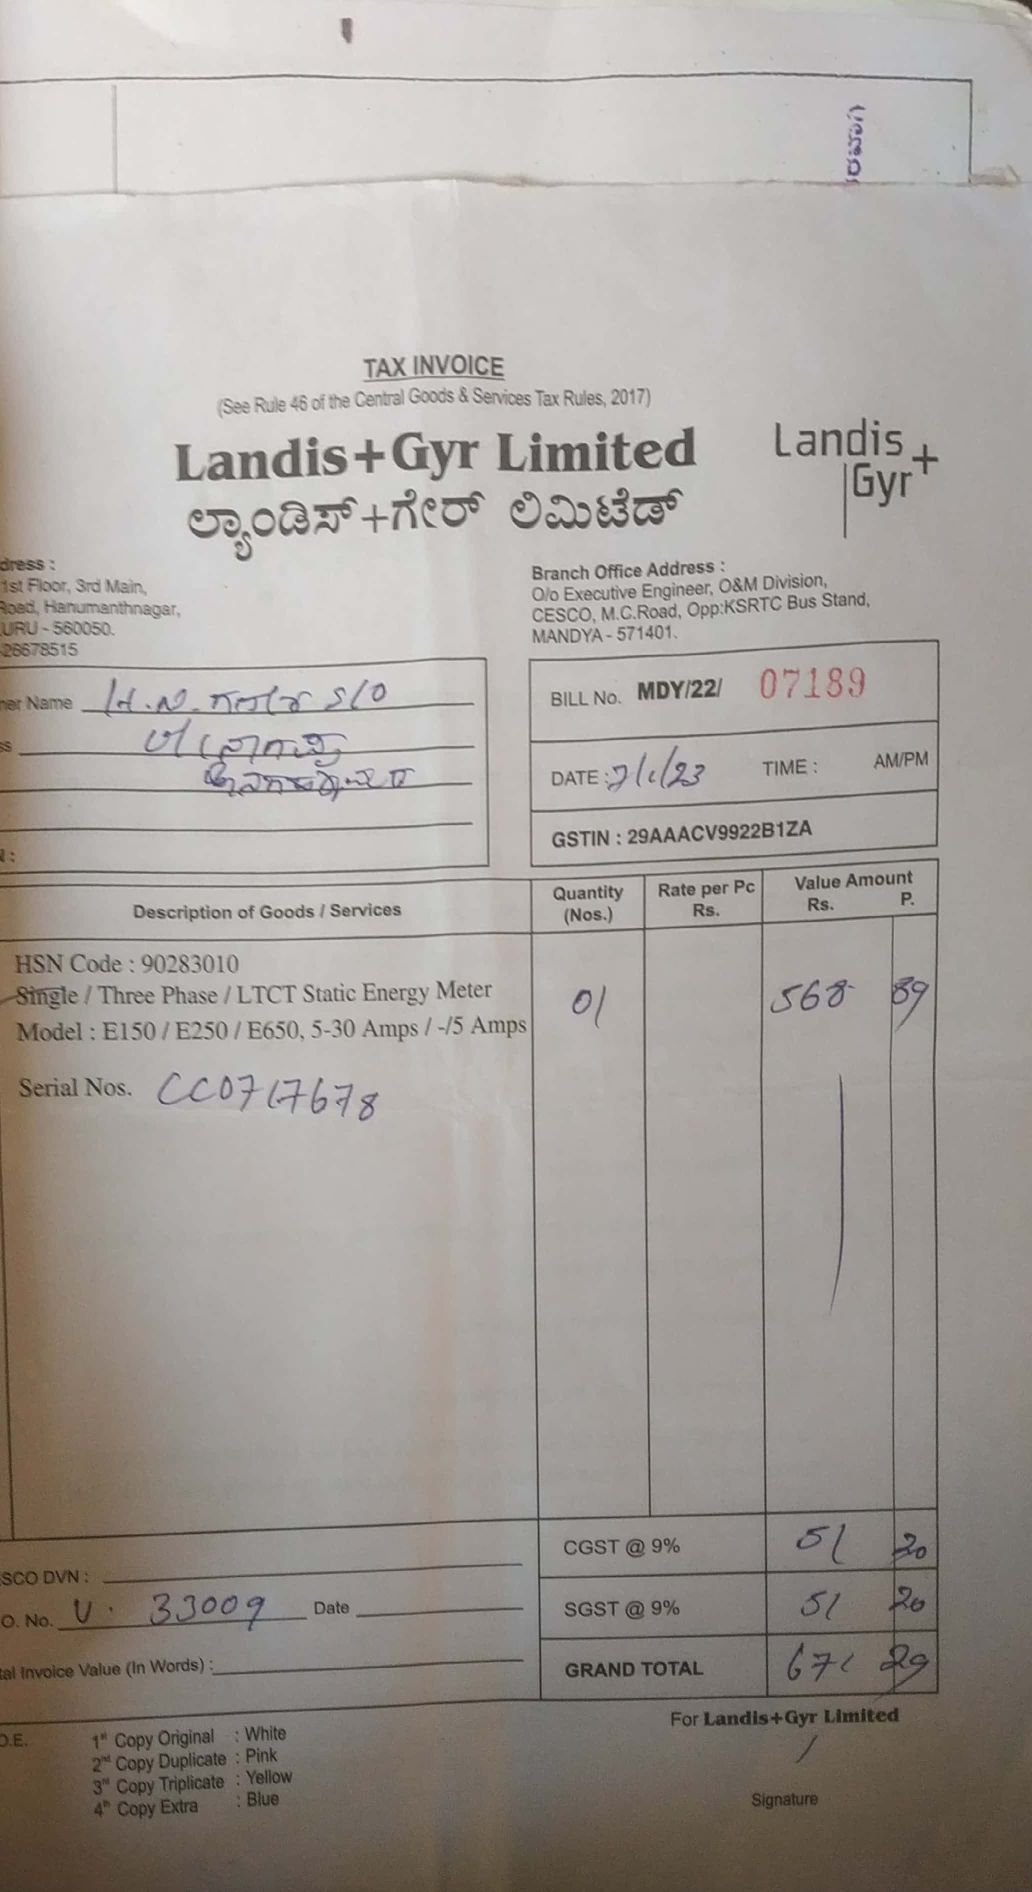 TAX INVOICE
(See Rule 46 of the Central Goods & Services Tax Rules, 2017)
Landis+Gyr Limited
ಲ್ಯಾಂಡಿಸ್+ಗೇರ್ ಲಿಮಿಟೆಡ್
Landis
Gyr+
dress :
1st Floor, 3rd Main,
Road, Hanumanthnagar,
URU - 560050.
26678515
Branch Office Address :
O/o Executive Engineer, O&M Division,
CESCO, M.C.Road, Opp:KSRTC Bus Stand,
MANDYA - 571401.
ner Name S/O
ss
N :
BILL No. MDY/22/ 07189
DATE : /23 TIME : AM/PM
GSTIN : 29AAACV9922B1ZA
Description of Goods / Services Quantity (Nos.) Rate per Pc Rs. Value Amount Rs. P.
HSN Code : 90283010
Single / Three Phase / LTCT Static Energy Meter 01 568 89
Model : E150 / E250 / E650, 5-30 Amps / -/5 Amps
Serial Nos. CC0717678
CGST @ 9% 51 20
SCO DVN :
SGST @ 9% 51 20
O. No. V. 33009 Date
tal Invoice Value (In Words) :
GRAND TOTAL 671 29
O.E.
1st Copy Original : White
2nd Copy Duplicate : Pink
3rd Copy Triplicate : Yellow
4th Copy Extra : Blue
For Landis+Gyr Limited
Signature